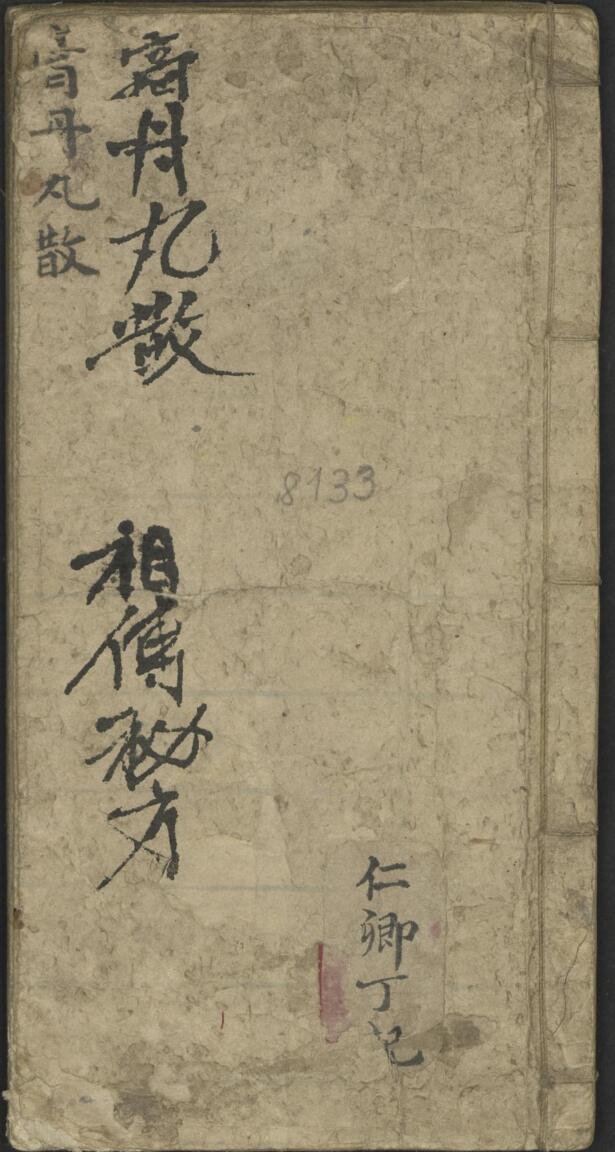 仁卿丁記
8133
膏丹丸散
祖傳秘方
膏丹丸散